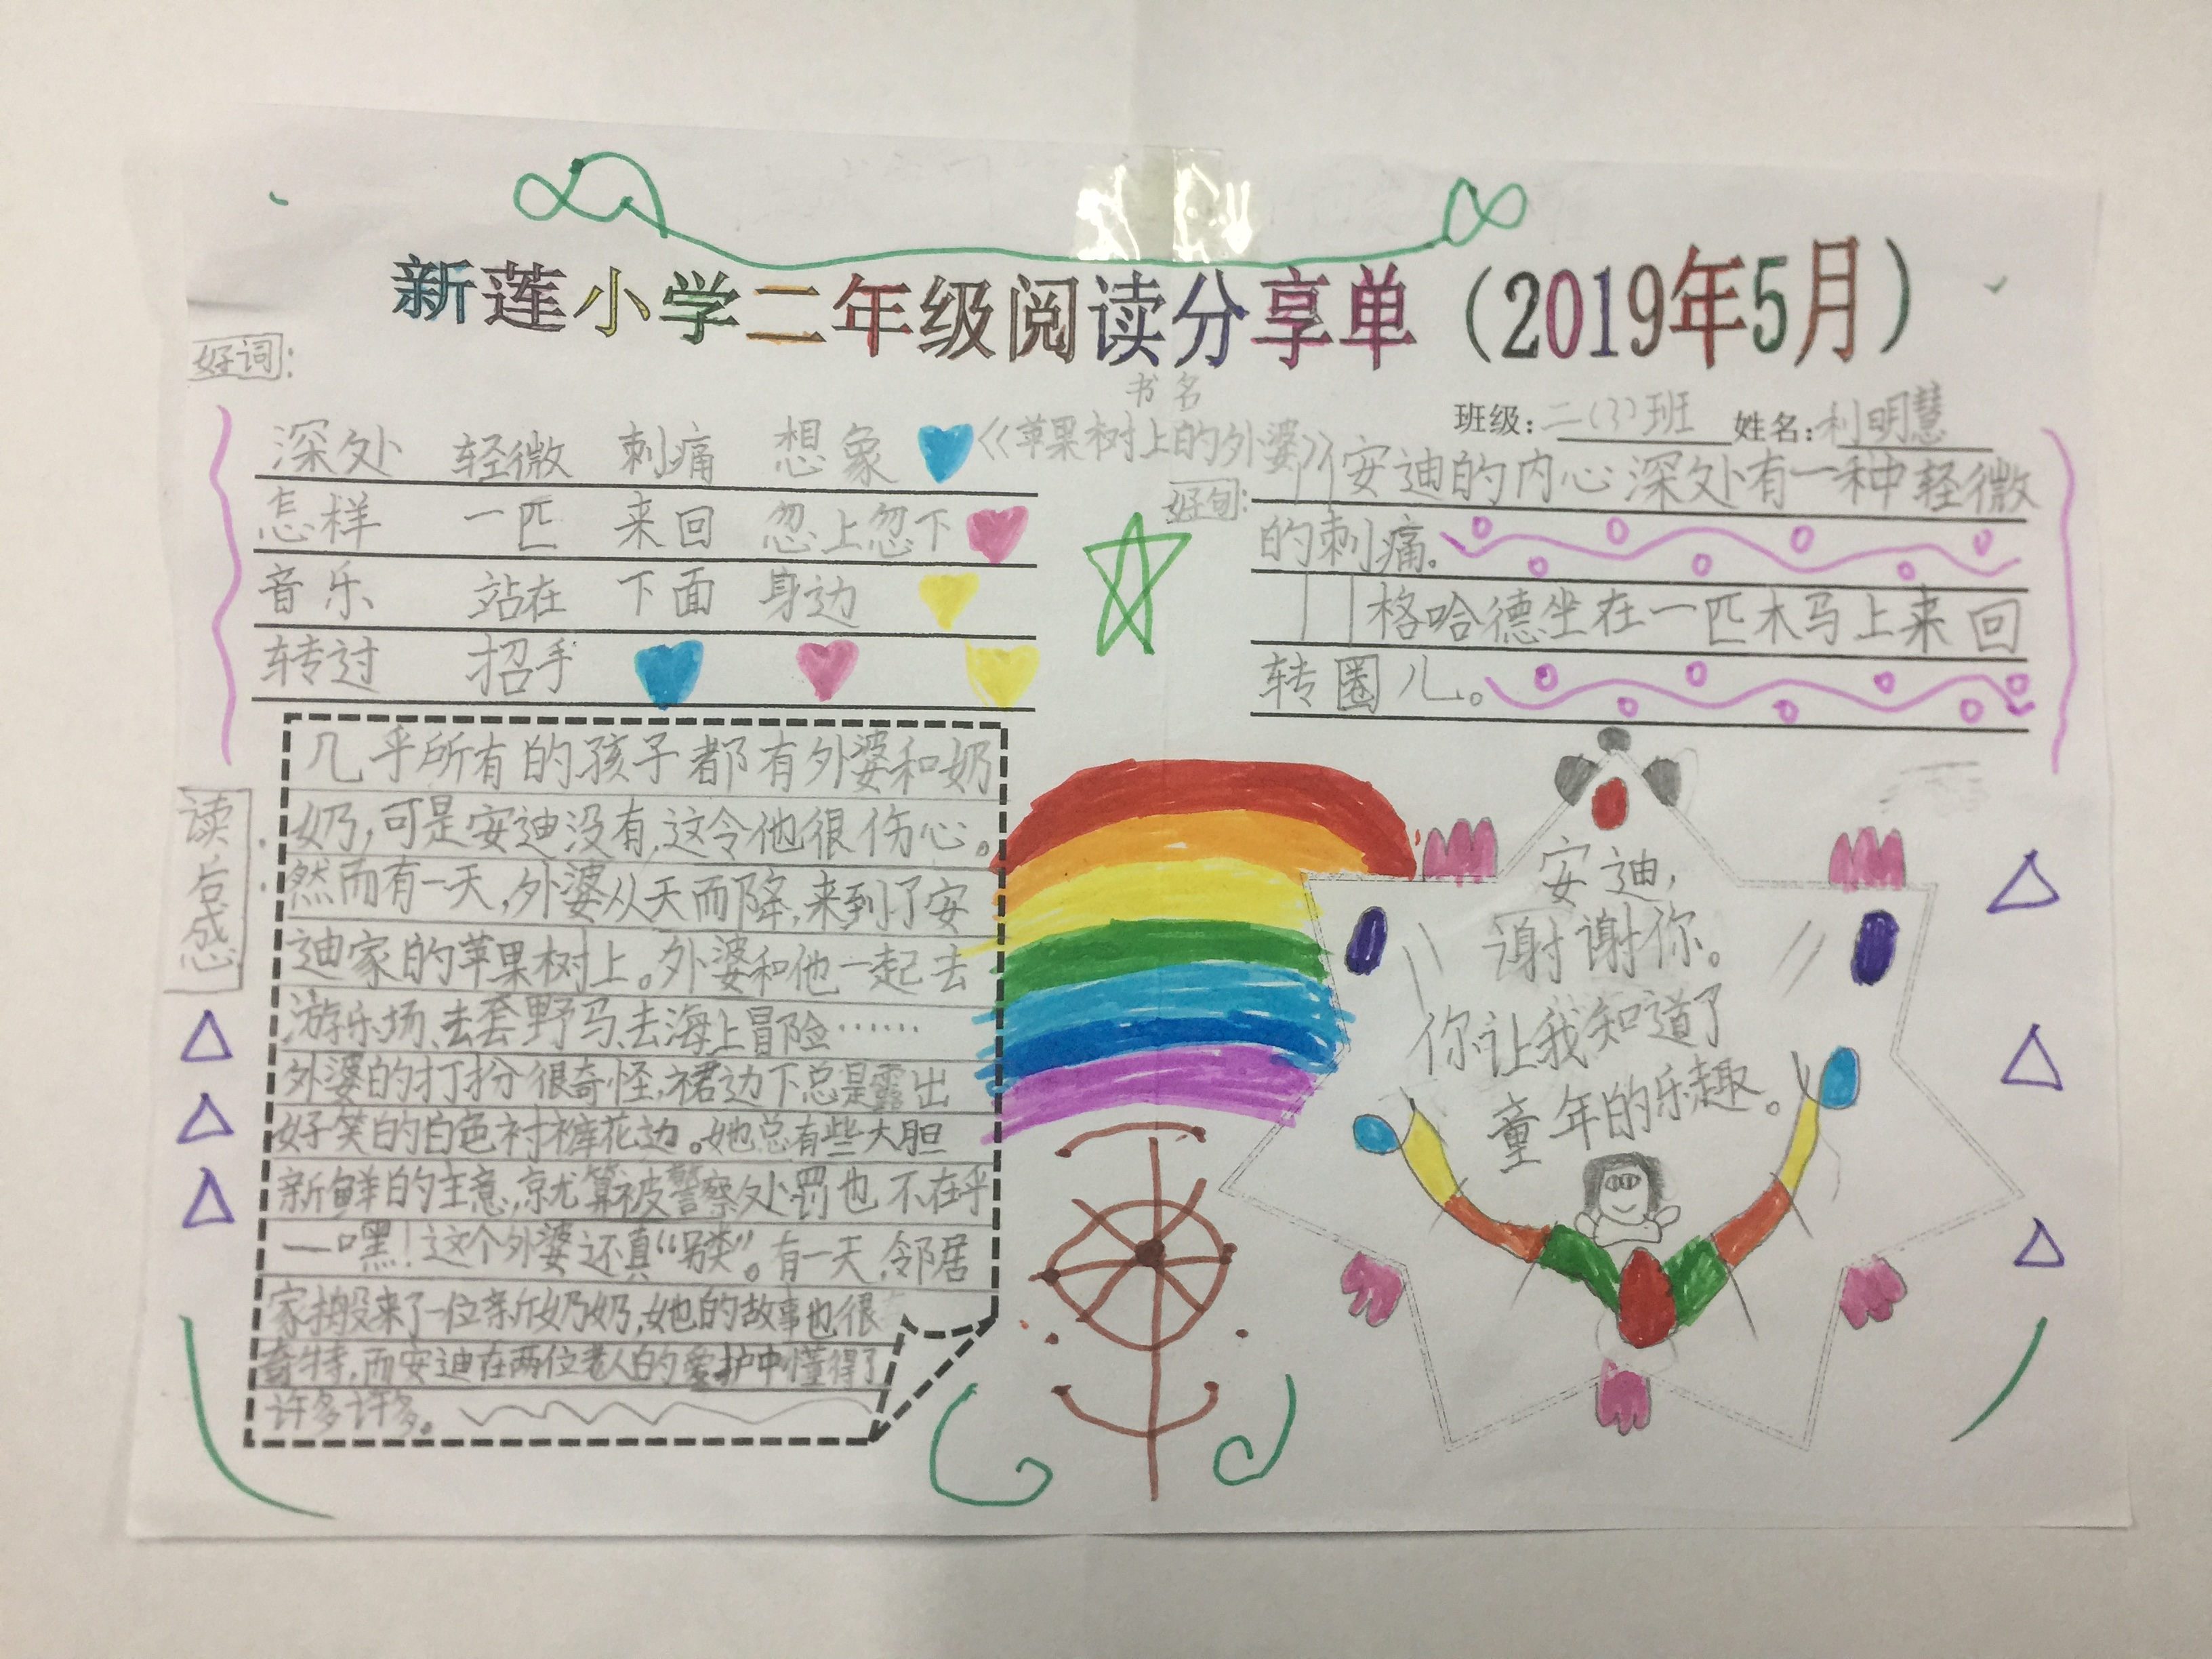 新莲小学二年级阅读分享单（2019年5月）
好词：
书名
《苹果树上的外婆》
班级：二(3)班 姓名：利明慧
深处 轻微 刺痛 想象
怎样 一匹 来回 忽上忽下
音乐 站在 下面 身边
转过 招手
好句：
安迪的内心深处有一种轻微
的刺痛。
格哈德坐在一匹木马上来回
转圈儿。
读后感：
几乎所有的孩子都有外婆和奶
奶，可是安迪没有，这令他很伤心。
然而有一天，外婆从天而降，来到了安
迪家的苹果树上。外婆和他一起去
游乐场、去套野马、去海上冒险……
外婆的打扮很奇怪，裙边下总是露出
好笑的白色衬裤花边。她总有些大胆
新鲜的主意，就算被警察处罚也不在乎
—嘿！这个外婆还真“另类”。有一天，邻居
家搬来了一位新奶奶，她的故事也很
奇特，而安迪在两位老人的爱护中懂得了
许多许多。
安迪，
谢谢你。
你让我知道了
童年的乐趣。